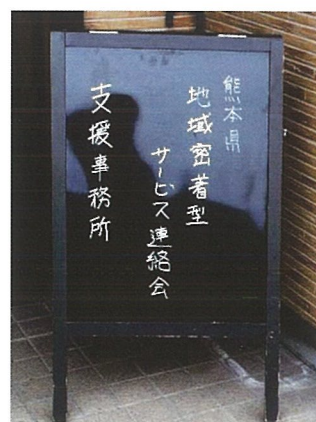 熊本県
地域密着型
サービス連絡会
支援事務所